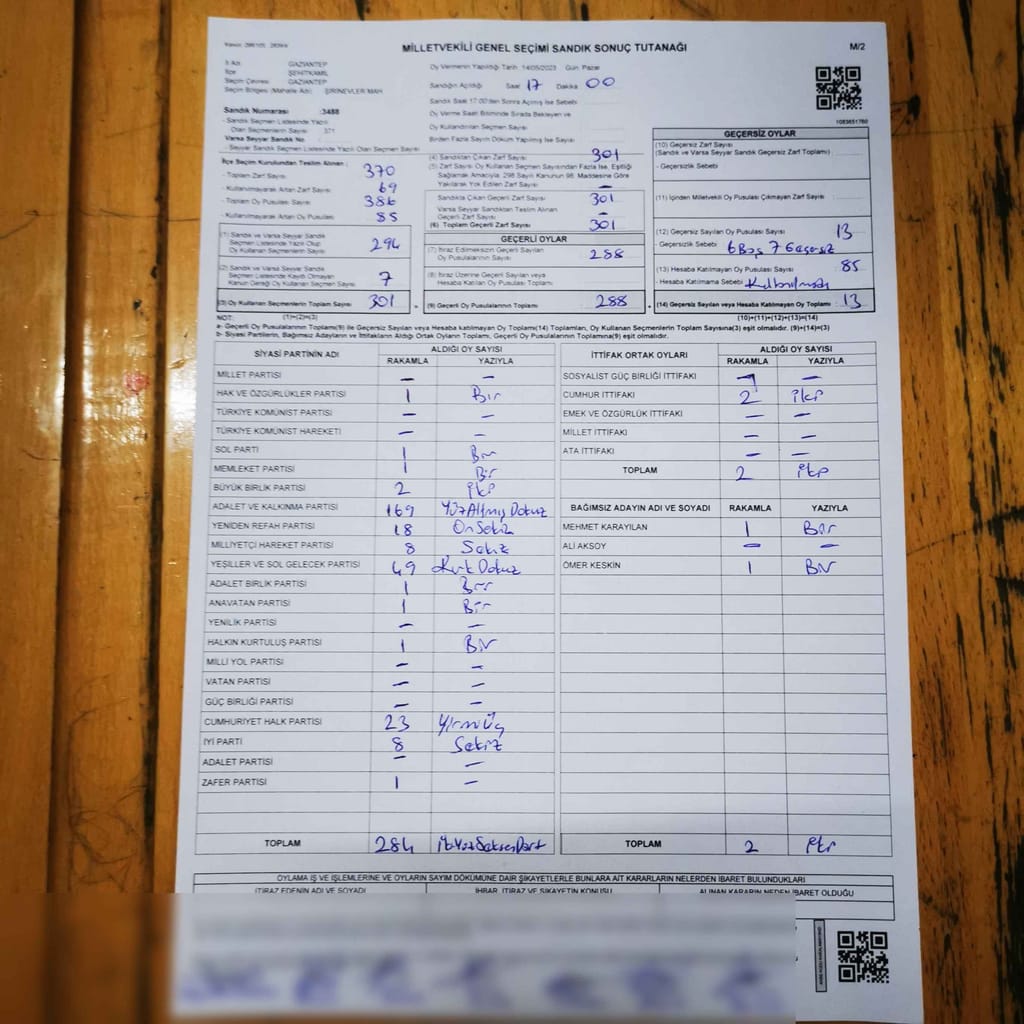 MİLLETVEKİLİ GENEL SEÇİMİ SANDIK SONUÇ TUTANAĞI
M/2
İl Adı GAZİANTEP
İlçe ŞEHİTKAMİL
Seçim Çevresi GAZİANTEP
Seçim Bölgesi (Mahalle Adı) ŞİRİNEVLER MAH
Oy Vermenin Yapıldığı Tarih 14/05/2023 Gün Pazar
Sandığın Açıldığı Saat 17 Dakika 00
Sandık Saat 17:00'den Sonra Açılmış İse Sebebi
Oy Verme Saati Bitiminde Sırada Bekleyen ve
Oy Kullandırılan Seçmen Sayısı
Birden Fazla Sayım Döküm Yapılmış İse Sayısı
1083651760
Sandık Numarası :3488
- Sandık Seçmen Listesinde Yazılı
Olan Seçmenlerin Sayısı 371
Varsa Seyyar Sandık No
- Seyyar Sandık Seçmen Listesinde Yazılı Olan Seçmen Sayısı
İlçe Seçim Kurulundan Teslim Alınan :
- Toplam Zarf Sayısı 370
- Kullanılmayarak Artan Zarf Sayısı 69
- Toplam Oy Pusulası Sayısı 386
- Kullanılmayarak Artan Oy Pusulası 85
(1) Sandık ve Varsa Seyyar Sandık
Seçmen Listesinde Yazılı Olup
Oy Kullanan Seçmenlerin Sayısı 294
(2) Sandık ve Varsa Seyyar Sandık
Seçmen Listesinde Kayıtlı Olmayan
Kanun Gereği Oy Kullanan Seçmenlerin Sayısı 7
(3) Oy Kullanan Seçmenlerin Toplam Sayısı 301
(1)+(2)=(3)
(4) Sandıktan Çıkan Zarf Sayısı 301
(5) Zarf Sayısı Oy Kullanan Seçmen Sayısından Fazla İse, Eşitliği
Sağlamak Amacıyla, 298 Sayılı Kanunun 98. Maddesine Göre
Yakılarak Yok Edilen Zarf Sayısı —
Sandıkta Çıkan Geçerli Zarf Sayısı 301
Varsa Seyyar Sandıktan Teslim Alınan
Geçerli Zarf Sayısı —
(6) Toplam Geçerli Zarf Sayısı 301
GEÇERLİ OYLAR
(7) İtiraz Edilmeksizin Geçerli Sayılan
Oy Pusulalarının Sayısı 288
(8) İtiraz Üzerine Geçerli Sayılan veya
Hesaba Katılan Oy Pusulası Toplamı
= (9) Geçerli Oy Pusulalarının Toplamı 288
GEÇERSİZ OYLAR
(10) Geçersiz Zarf Sayısı
(Sandık ve Varsa Seyyar Sandık Geçersiz Zarf Toplamı)
- Geçersizlik Sebebi
(11) İçinden Milletvekili Oy Pusulası Çıkmayan Zarf Sayısı
(12) Geçersiz Sayılan Oy Pusulası Sayısı 13
- Geçersizlik Sebebi 6 Boş 7 Geçersiz
(13) Hesaba Katılmayan Oy Pusulası Sayısı 85
- Hesaba Katılmama Sebebi
+ (14) Geçersiz Sayılan veya Hesaba Katılmayan Oy Toplamı 13
(10)+(11)+(12)+(13)=(14)
NOT:
a- Geçerli Oy Pusulalarının Toplamı(9) ile Geçersiz Sayılan veya Hesaba katılmayan Oy Toplamı(14) Toplamları, Oy Kullanan Seçmenlerin Toplam Sayısına(3) eşit olmalıdır. (9)+(14)=(3)
b- Siyasi Partilerin, Bağımsız Adayların ve İttifakların Aldığı Ortak Oyların Toplamı, Geçerli Oy Pusulalarının Toplamına(9) eşit olmalıdır.
SİYASİ PARTİNİN ADI ALDIĞI OY SAYISI
RAKAMLA YAZIYLA
MİLLET PARTİSİ — —
HAK VE ÖZGÜRLÜKLER PARTİSİ 1 Bir
TÜRKİYE KOMÜNİST PARTİSİ — —
TÜRKİYE KOMÜNİST HAREKETİ — —
SOL PARTİ 1 Bir
MEMLEKET PARTİSİ 1 Bir
BÜYÜK BİRLİK PARTİSİ 2 iki
ADALET VE KALKINMA PARTİSİ 169 YüzAltmış Dokuz
YENİDEN REFAH PARTİSİ 18 On Sekiz
MİLLİYETÇİ HAREKET PARTİSİ 8 Sekiz
YEŞİLLER VE SOL GELECEK PARTİSİ 49 Kırk Dokuz
ADALET BİRLİK PARTİSİ 1 Bir
ANAVATAN PARTİSİ 1 Bir
YENİLİK PARTİSİ — —
HALKIN KURTULUŞ PARTİSİ 1 Bir
MİLLİ YOL PARTİSİ — —
VATAN PARTİSİ — —
GÜÇ BİRLİĞİ PARTİSİ — —
CUMHURİYET HALK PARTİSİ 23 YirmiÜç
İYİ PARTİ 8 Sekiz
ADALET PARTİSİ — —
ZAFER PARTİSİ 1 —
TOPLAM 284 ikiYüzSeksenDört
İTTİFAK ORTAK OYLARI ALDIĞI OY SAYISI
RAKAMLA YAZIYLA
SOSYALİST GÜÇ BİRLİĞİ İTTİFAKI — —
CUMHUR İTTİFAKI 2 iki
EMEK VE ÖZGÜRLÜK İTTİFAKI — —
MİLLET İTTİFAKI — —
ATA İTTİFAKI — —
TOPLAM 2 iki
BAĞIMSIZ ADAYIN ADI VE SOYADI RAKAMLA YAZIYLA
MEHMET KARAYILAN 1 Bir
ALİ AKSOY — —
ÖMER KESKİN 1 Bir
TOPLAM 2 iki
OYLAMA İŞ VE İŞLEMLERİNE VE OYLARIN SAYIM DÖKÜMÜNE DAİR ŞİKAYETLERLE BUNLARA AİT KARARLARIN NELERDEN İBARET BULUNDUKLARI
İTİRAZ EDENİN ADI VE SOYADI İHBAR, İTİRAZ VE ŞİKAYETİN KONUSU ALINAN KARARIN NEDEN İBARET OLDUĞU